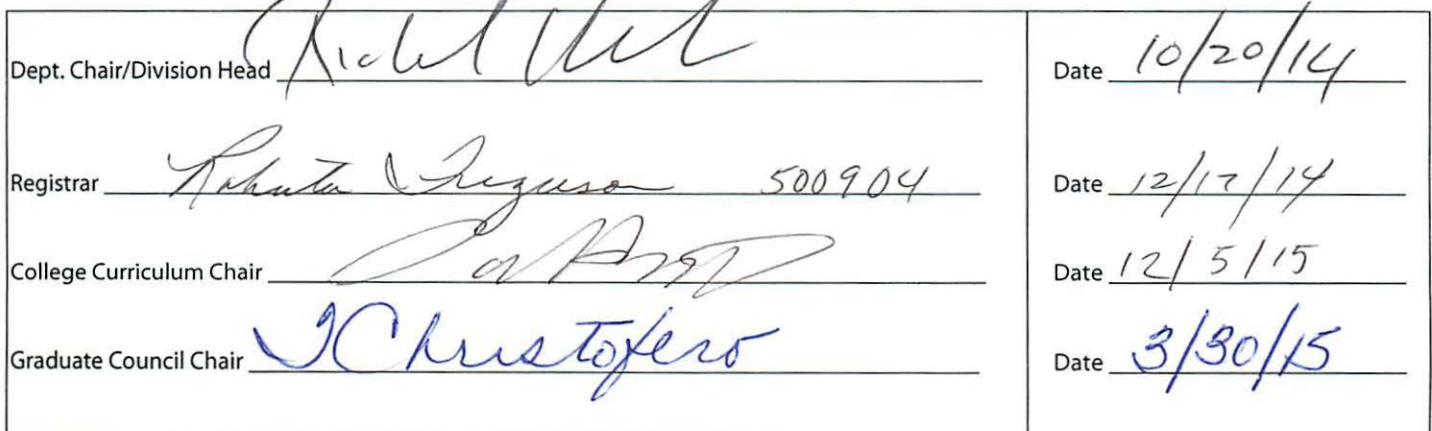 Dept. Chair/Division Head Date 10/20/14
Registrar Roberta Ferguson 500904 Date 12/17/14
College Curriculum Chair Date 12/5/15
Graduate Council Chair TChristofero Date 3/30/15